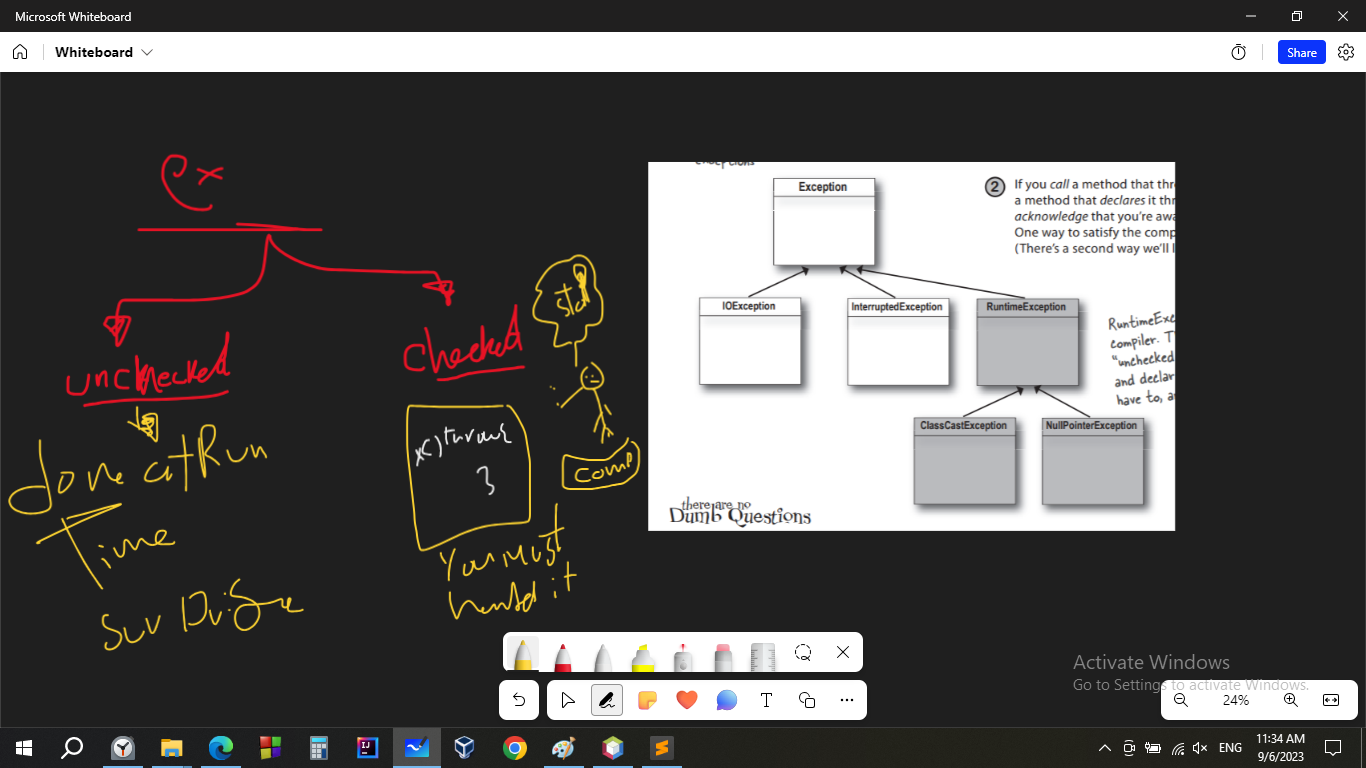 Microsoft Whiteboard
Whiteboard
Share
ex
unchecked
checked
done at Run
Time
Surprise
std
x() throws
}
Comp
You Must
handel it
Exception
IOException
InterruptedException
RuntimeException
ClassCastException
NullPointerException
2
If you call a method that thr
a method that declares it thr
acknowledge that you're awa
One way to satisfy the comp
(There's a second way we'll l
RuntimeExce
compiler. T
"unchecked
and declar
have to, a
there are no
Dumb Questions
Activate Windows
Go to Settings to activate Windows.
24%
ENG
11:34 AM
9/6/2023